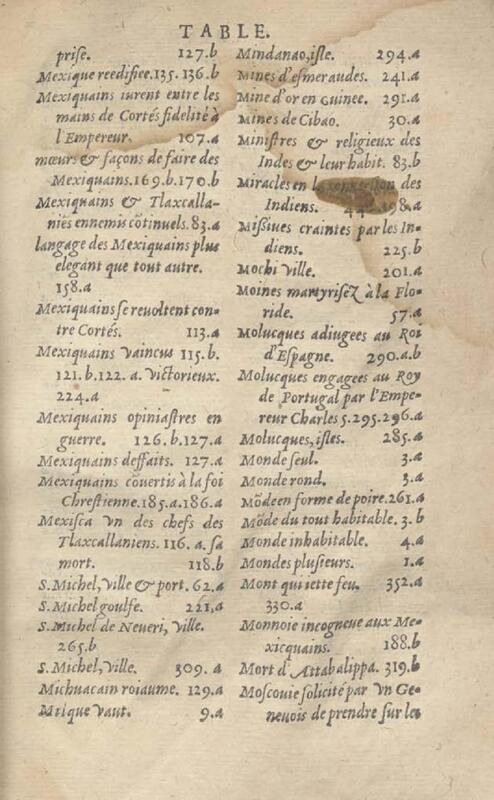 TABLE.
prise. 127.b
Mexique reedifiee.135. 136.b
Mexiquains iurent entre les
mains de Cortés fidelité à
l'Empereur. 107.a
mœurs & façons de faire des
Mexiquains.169.b.170.b
Mexiquains & Tlaxcalla-
niẽs ennemis cõtinuels.83.a
langage des Mexiquains plus
elegant que tout autre.
158.a
Mexiquains se reuoltent con-
tre Cortés. 113.a
Mexiquains vaincus 115.b.
121.b.122.a. victorieux.
224.a
Mexiquains opiniastres en
guerre. 126.b.127.a
Mexiquains deffaits. 127.a
Mexiquains cõuertis à la foi
Chrestienne.185.a.186.a
Mexisca vn des chefs des
Tlaxcallaniens.116.a. sa
mort. 118.b
S.Michel, ville & port. 62.a
S.Michel goulfe. 221.a
S.Michel de Neueri, ville.
265.b
S.Michel, ville. 309.a
Michuacain roiaume. 129.a
Mtique vaut. 9.a
Mindanao, isle. 294.a
Mines d'esmeraudes. 241.a
Mine d'or en Guinee. 291.a
Mines de Cibao. 30.a
Ministres & religieux des
Indes & leur habit. 83.b
Miracles en la des
Indiens. 198.a
Missiues craintes par les In-
diens. 225.b
Mochi ville. 201.a
Moines martyrisez à la Flo-
ride. 57.a
Molucques adiugees au Roi
d'Espagne. 290.a.b
Molucques engagees au Roy
de Portugal par l'Empe-
reur Charles 5.295.296.a
Molucques, isles. 285.a
Monde seul. 3.a
Monde rond. 3.a
Mõde en forme de poire.261.a
Mõde du tout habitable. 3.b
Monde inhabitable. 4.a
Mondes plusieurs. 1.a
Mont qui iette feu. 352.a
330.a
Monnoie incogneue aux Me-
xicquains. 188.b
Mort d'Attabalippa. 319.b
Moscouie solicité par vn Ge-
neuois de prendre sur les